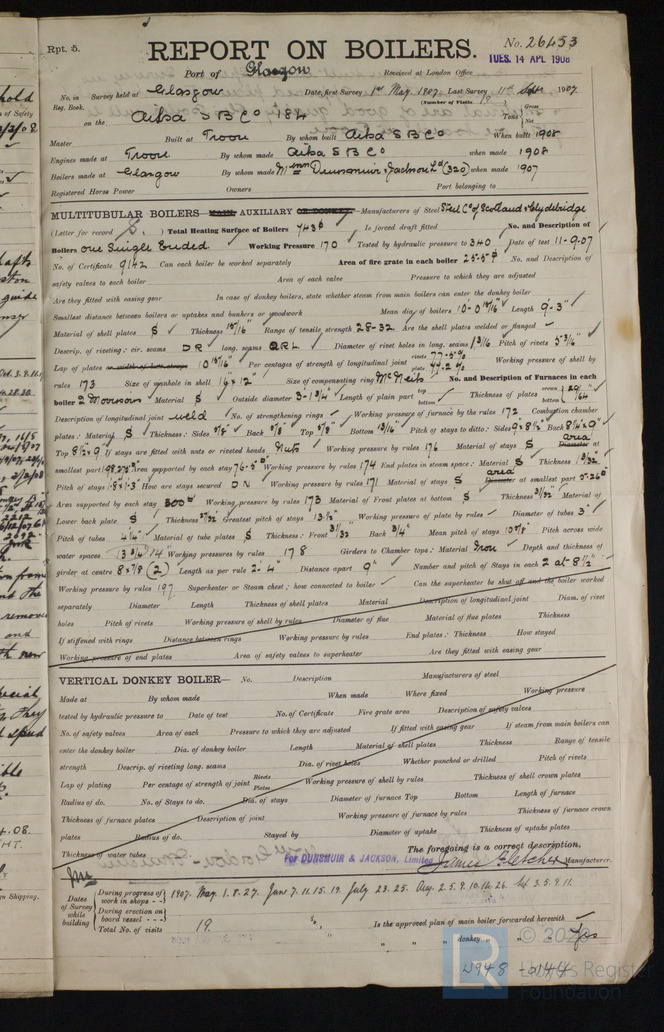 Rpt. 5.
REPORT ON BOILERS.
No. 26453
Port of Glasgow
Received at London Office TUES. 14 APL 1908
No. in Survey held at Glasgow Date, first Survey 1st May. 1907. Last Survey 11th Sept 1907.
Reg. Book. (Number of Visits 19)
on the Ailsa S B Co 184 Tons Gross Net
Master Built at Troon By whom built Ailsa S B Co When built 1908
Engines made at Troon By whom made Ailsa S B Co when made 1908
Boilers made at Glasgow By whom made Messrs Dunsmuir & Jackson Ld (320) when made 1907
Registered Horse Power Owners Port belonging to
MULTITUBULAR BOILERS MAIN, AUXILIARY OR DONKEY.—Manufacturers of Steel Steel Co of Scotland & Clydebridge
(Letter for record S.) Total Heating Surface of Boilers 743 Is forced draft fitted No. and Description of
Boilers One Single Ended Working Pressure 170 Tested by hydraulic pressure to 340 Date of test 11-9-07
No. of Certificate 9142 Can each boiler be worked separately Area of fire grate in each boiler 25.5 No. and Description of
safety valves to each boiler Area of each valve Pressure to which they are adjusted
Are they fitted with easing gear In case of donkey boilers, state whether steam from main boilers can enter the donkey boiler
Smallest distance between boilers or uptakes and bunkers or woodwork Mean dia. of boilers 10'-0 15/16" Length 9'-3"
Material of shell plates S Thickness 15/16" Range of tensile strength 28-32 Are the shell plates welded or flanged
Descrip. of riveting: cir. seams DR long. seams QRL Diameter of rivet holes in long. seams 13/16 Pitch of rivets 5 3/16"
Lap of plates or width of butt straps 10 15/16" Per centages of strength of longitudinal joint rivets 77.5% plate Working pressure of shell by
rules 173 Size of manhole in shell 16" x 12" Size of compensating ring McNeils No. and Description of Furnaces in each
boiler 2 Morrisons Material S Outside diameter 3'-1 3/4" Length of plain part top bottom Thickness of plates crown bottom 29/64"
Description of longitudinal joint weld No. of strengthening rings Working pressure of furnace by the rules 172 Combustion chamber
plates: Material S Thickness: Sides 5/8" Back 5/8" Top 5/8" Bottom 13/16" Pitch of stays to ditto: Sides 9 x 8 1/2" Back 8 1/4 x 9"
Top 8 1/2 x 9 If stays are fitted with nuts or riveted heads Nuts Working pressure by rules 176 Material of stays S Diameter area at
smallest part Area supported by each stay 76.5 Working pressure by rules 174 End plates in steam space: Material S Thickness 31/32"
Pitch of stays How are stays secured DN Working pressure by rules 171 Material of stays S Diameter area at smallest part 5.26
Area supported by each stay 300 Working pressure by rules 173 Material of Front plates at bottom S Thickness 31/32" Material of
Lower back plate S Thickness 27/32" Greatest pitch of stays 13 1/2" Working pressure of plate by rules Diameter of tubes 3"
Pitch of tubes 4 1/4" Material of tube plates S Thickness: Front 31/32" Back 3/4" Mean pitch of stays 10 5/8" Pitch across wide
water spaces 13 3/4 14 Working pressures by rules 178 Girders to Chamber tops: Material Iron Depth and thickness of
girder at centre 8 x 7/8 (2) Length as per rule 2'-4" Distance apart 9" Number and pitch of Stays in each 2 at 8 1/2"
Working pressure by rules 197. Superheater or Steam chest; how connected to boiler Can the superheater be shut off and the boiler worked
separately Diameter Length Thickness of shell plates Material Description of longitudinal joint Diam. of rivet
holes Pitch of rivets Working pressure of shell by rules Diameter of flue Material of flue plates Thickness
If stiffened with rings Distance between rings Working pressure by rules End plates: Thickness How stayed
Working pressure of end plates Area of safety valves to superheater Are they fitted with easing gear
VERTICAL DONKEY BOILER— No. Description Manufacturers of steel
Made at By whom made When made Where fixed Working pressure
tested by hydraulic pressure to Date of test No. of Certificate Fire grate area Description of safety valves
No. of safety valves Area of each Pressure to which they are adjusted If fitted with easing gear If steam from main boilers can
enter the donkey boiler Dia. of donkey boiler Length Material of shell plates Thickness Range of tensile
strength Descrip. of riveting long. seams Dia. of rivet holes Whether punched or drilled Pitch of rivets
Lap of plating Per centage of strength of joint Rivets Plates Working pressure of shell by rules Thickness of shell crown plates
Radius of do. No. of Stays to do. Dia. of stays Diameter of furnace Top Bottom Length of furnace
Thickness of furnace plates Description of joint Working pressure of furnace by rules Thickness of furnace crown
plates Radius of do. Stayed by Diameter of uptake Thickness of uptake plates
Thickness of water tubes The foregoing is a correct description,
For DUNSMUIR & JACKSON, Limited James Fletcher Manufacturer.
Dates of Survey while building
During progress of work in shops - - 1907. May. 1. 8. 27. June 7. 11. 15. 19. July 23. 25. Aug. 2. 5. 9. 10. 16. 26. Sept 3. 5. 9. 11.
During erection on board vessel - - -
Total No. of visits 19.
Is the approved plan of main boiler forwarded herewith
" " " donkey " " " Yes
© 2020
Lloyd's Register
Foundation
W948-0144